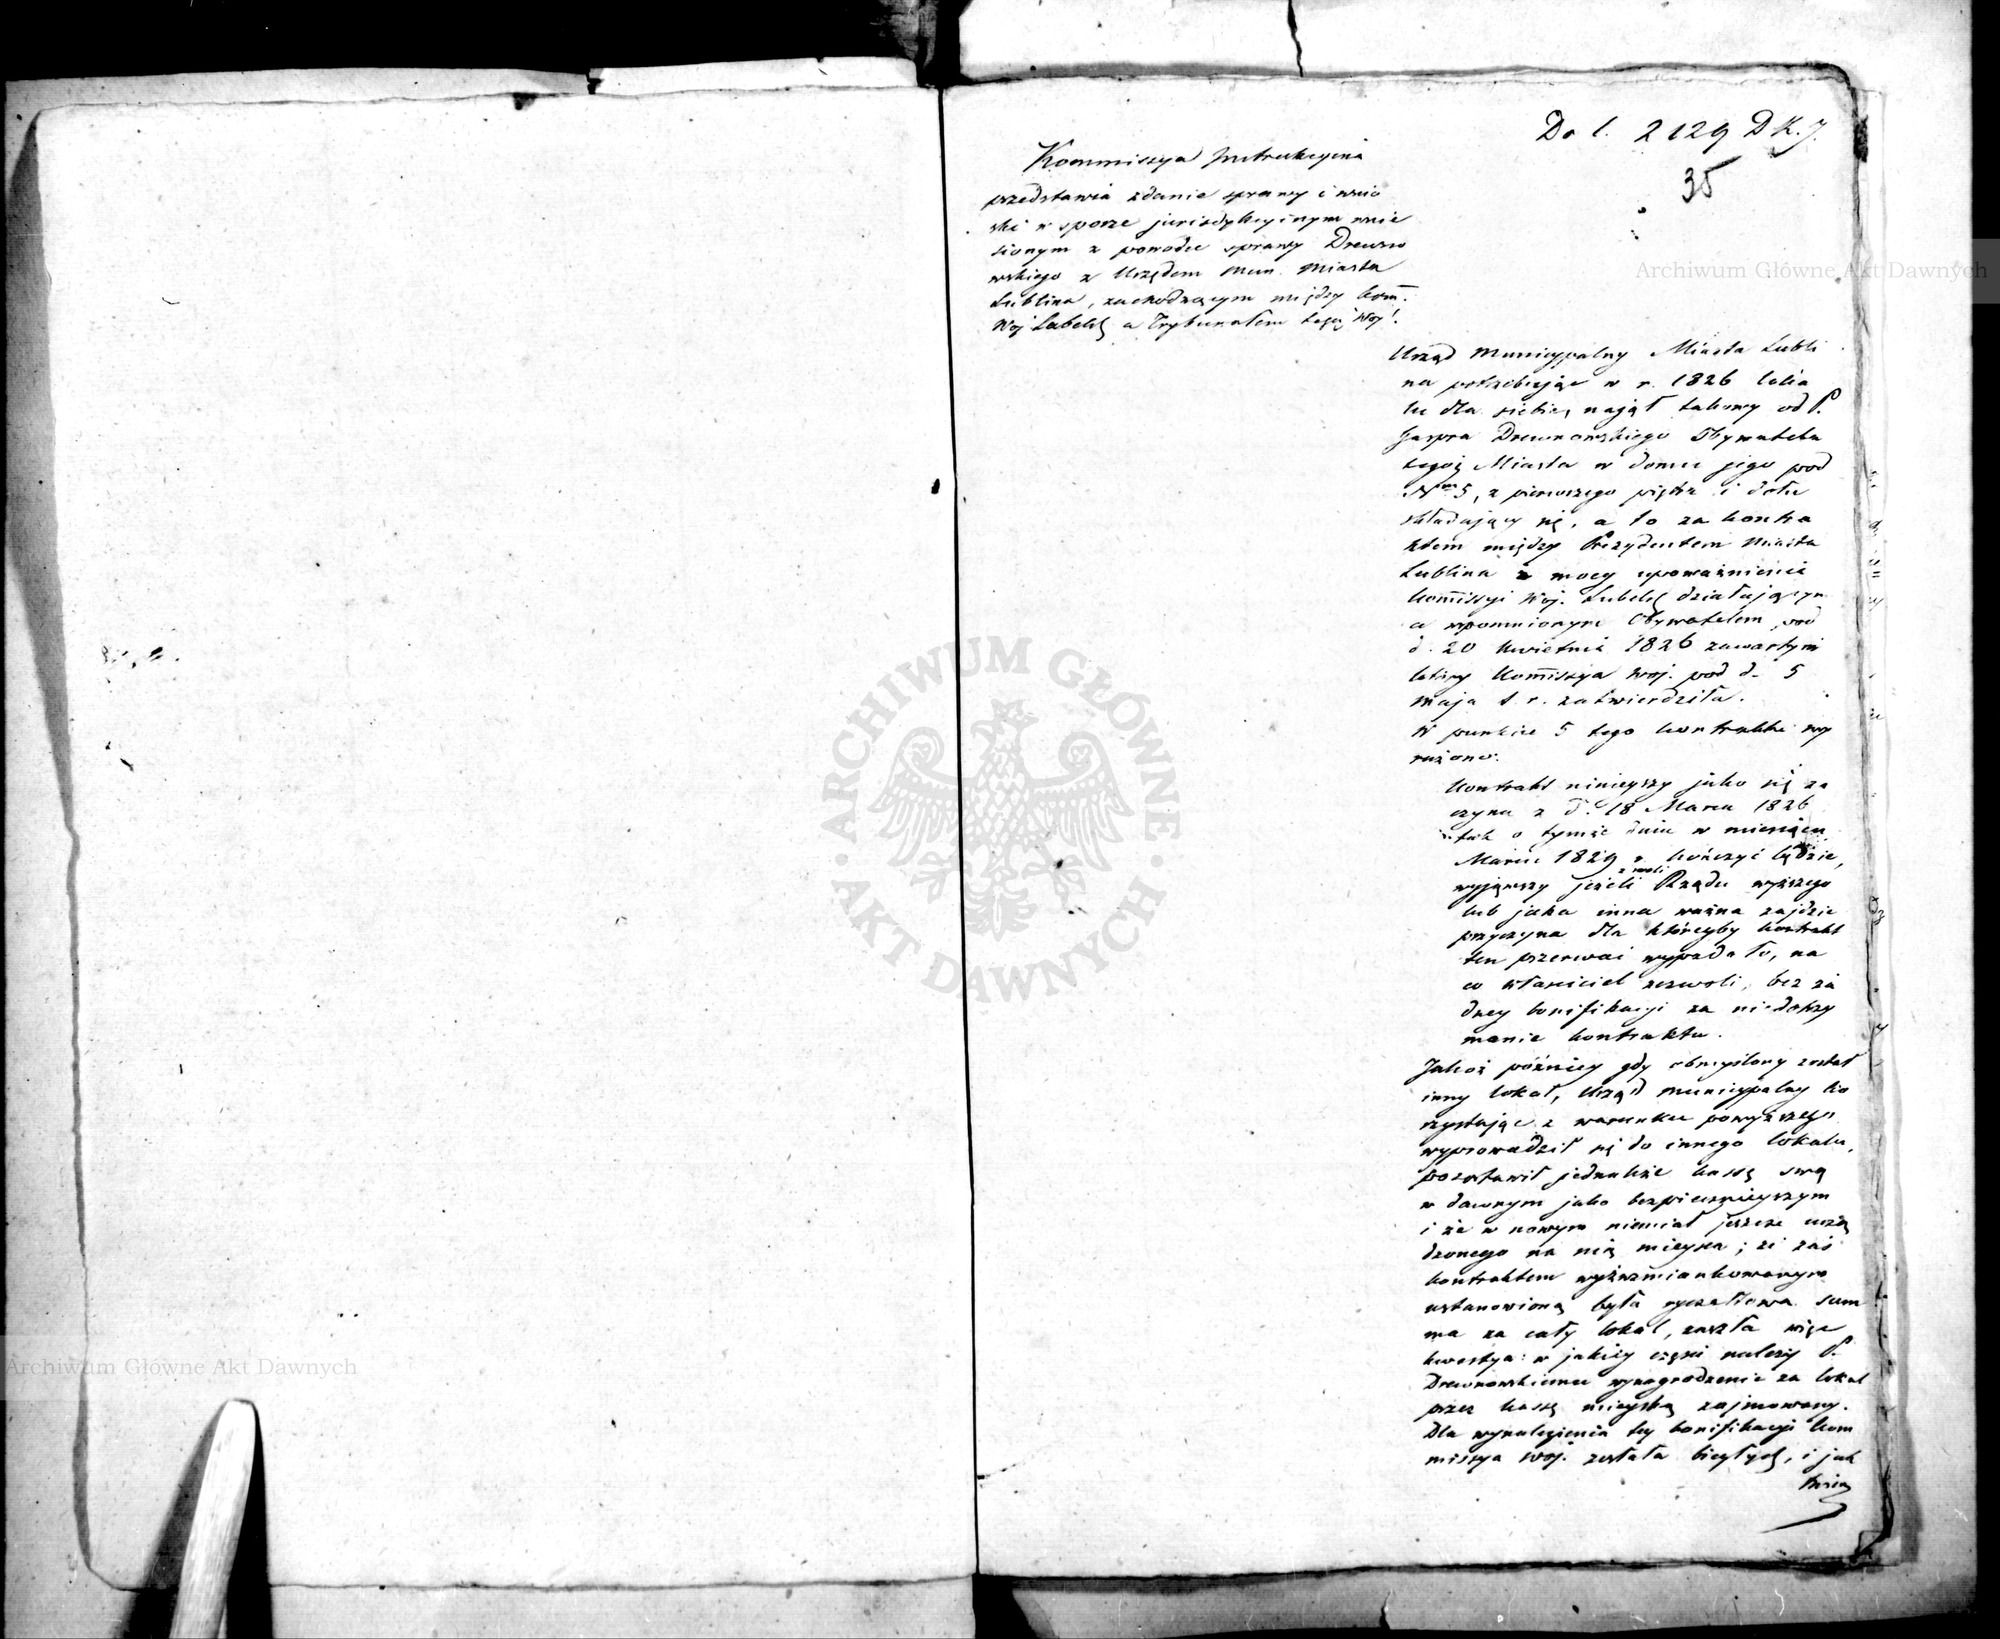 Do l. 2129 D K. J.
35
Kommissya Instrukcyina
przedstawia zdanie sprawy i wnio
ski w sporze jurisdykcyinym wnie
sionym z powodu sprawy Drewno
wskiego z Urzędem Mun. Miasta
Lublina, zachodzącym między Kom.
Woj Lubelsk a Trybunałem tegoż Woj.
Urząd Municypalny Miasta Lubli
na potrzebując w r. 1826 loka
lu dla siebie, najął takowy od P.
Drewnowskiego Obywatela
tegoż Miasta w domu jego pod
Nrm 5, z pierwszego piętra i dołu
składający się, a to za kontra
ktem między Prezydentem Miasta
Lublina z mocy upoważnienia
Kommissyi Woj. Lubelsk działającym
a wpomnionym Obywatelem pod
d. 20 Kwietnia 1826 zawartym
który Kommissya Woj. pod d. 5
Maja t. r. zatwierdziła.
W punkcie 5 tego kontraktu wy
rażono:
Kontrakt ninieyszy jako się za
czyna z d. 18 Marca 1826
tak o tymże dniu w miesiącu
Marcu 1829 r. kończyć będzie,
wyjąwszy jeżeli z woli Rządu wyższego
lub jaka inna ważna zajdzie
przyczyna dla któreyby kontrakt
ten przerwać wypadało, na
co właściciel zezwoli, bez ża
dney bonifikacyi za niedotrzy
manie kontraktu.
Jakoż późniey gdy obmyślony został
inny lokal, Urząd Municypalny ko
rzystając z warunku powyższego
wyprowadził się do innego lokalu,
pozostawił jednakże kassę swą
w dawnym jako bezpiecznieyszym
i że w nowym niemiał jeszcze urzą
dzonego na nią mieysca; że zaś
kontraktem wyżwzmiankowanym
ustanowioną była ryczałtowa sum
ma za cały lokal, zaszła więc
kwestya: w jakiey części należy P.
Drewnowskiemu wynagrodzenie za lokal
przez kassę mieyską zajmowany.
Dla wynalezienia tey bonifikacyi Kom
missya Woj. zesłała biegłych, i jak
Archiwum Główne Akt Dawnych
Archiwum Główne Akt Dawnych
ARCHIWUM GŁÓWNE
AKT DAWNYCH